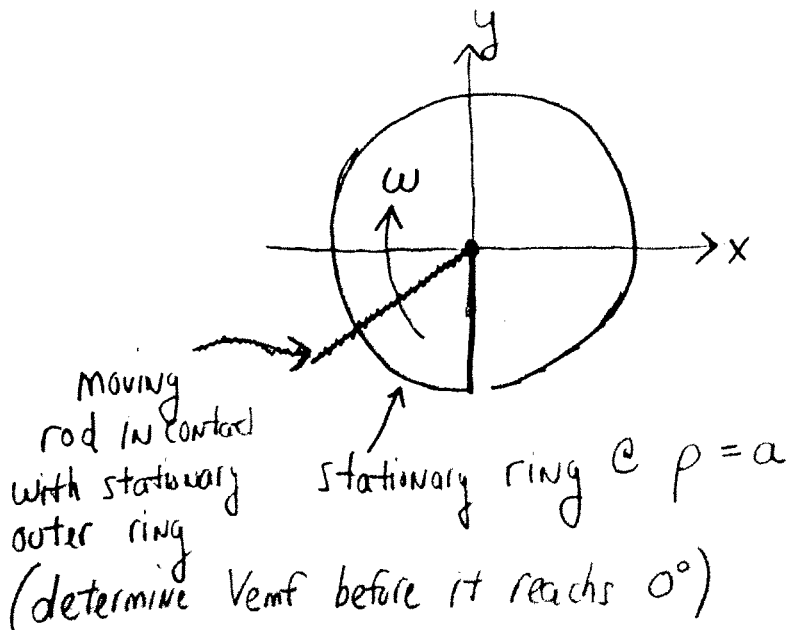 y
ω
x
moving
rod in contact
with stationary
outer ring
stationary ring @ ρ = a
(determine Vemf before it reachs 0°)